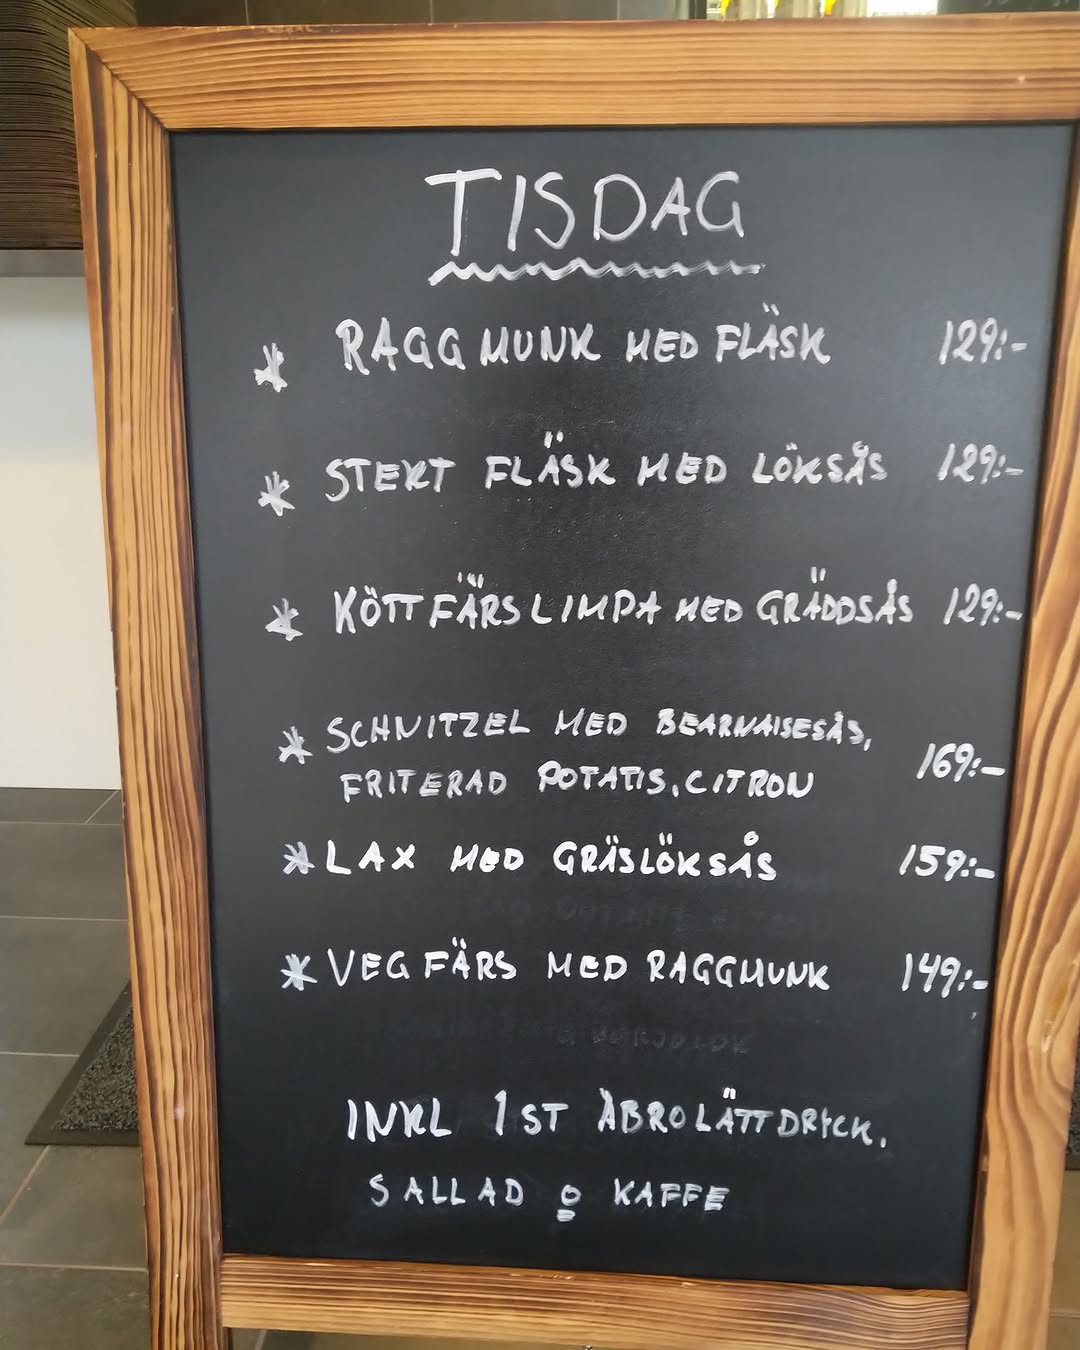 TISDAG
* RAGGMUNK MED FLÄSK 129:-
* STEKT FLÄSK MED LÖKSÅS 129:-
* KÖTTFÄRSLIMPA MED GRÄDDSÅS 129:-
* SCHNITZEL MED BEARNAISESÅS,
FRITERAD POTATIS, CITRON 169:-
* LAX MED GRÄSLÖKSÅS 159:-
* VEGFÄRS MED RAGGMUNK 149:-
INKL 1ST ÅBRO LÄTTDRYCK,
SALLAD o KAFFE